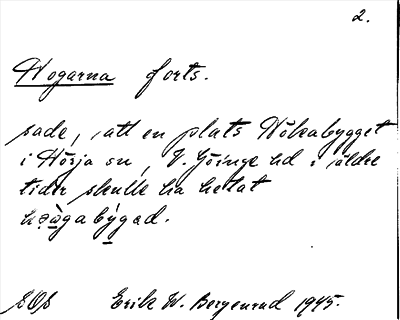 2.
Hogarna forts.
sade, att en plats Hökabygget
i Hörja sn, V. Göinge hd i äldre
tider skulle ha hetat
Erik W. Bergenrud 1945.